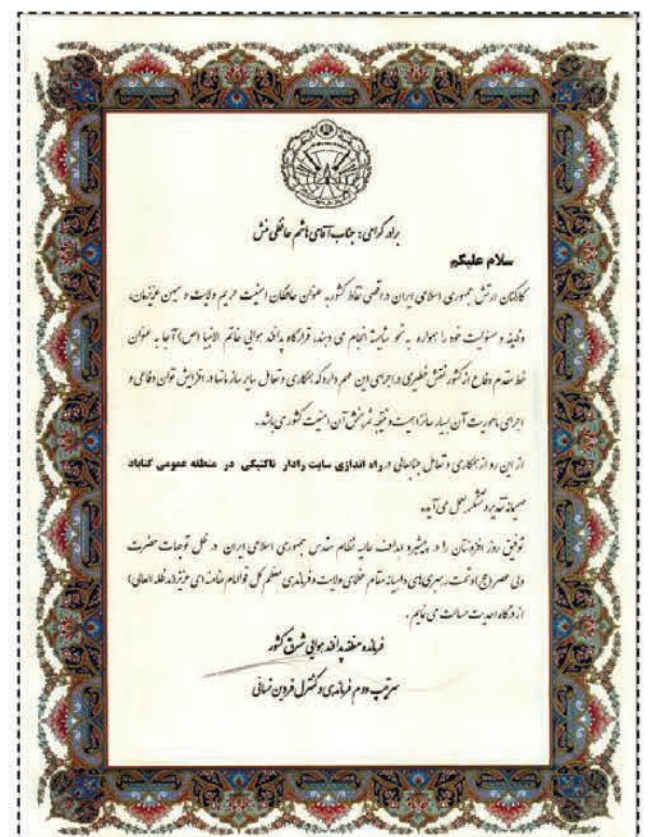 برادر گرامی: جناب آقای هاشم حافظی منش
سلام علیکم
کارکنان ارتش جمهوری اسلامی ایران در اقصی نقاط کشور به عنوان حافظان امنیت حریم ولایت و میهن عزیزمان،
وظیفه و مسئولیت خود را همواره به نحو شایسته انجام می دهند، قرارگاه پدافند هوایی خاتم الانبیا (ص) آجا به عنوان
خط مقدم دفاع از کشور نقش خطیری در اجرای این مهم دارد که همکاری و تعامل سایر سازمانها در افزایش توان دفاعی و
اجرای ماموریت آن بسیار حائز اهمیت و نتیجه ثمربخش آن امنیت کشور می باشد.
از این رو از همکاری و تعامل جنابعالی در راه اندازی سایت رادار تاکتیکی در منطقه عمومی گناباد
صمیمانه تقدیر و تشکر بعمل می آید.
توفیق روز افزونتان را در پیشبرد اهداف عالیه نظام مقدس جمهوری اسلامی ایران در ظل توجهات حضرت
ولی عصر (عج) و تحت رهبری های داهیانه مقام عظمای ولایت و فرماندهی معظم کل قوا امام خامنه ای عزیز (مد ظله العالی)
از درگاه احدیت مسالت می نمایم.
فرمانده منطقه پدافند هوایی شرق کشور
سرتیپ دوم فرماندهی و کنترل